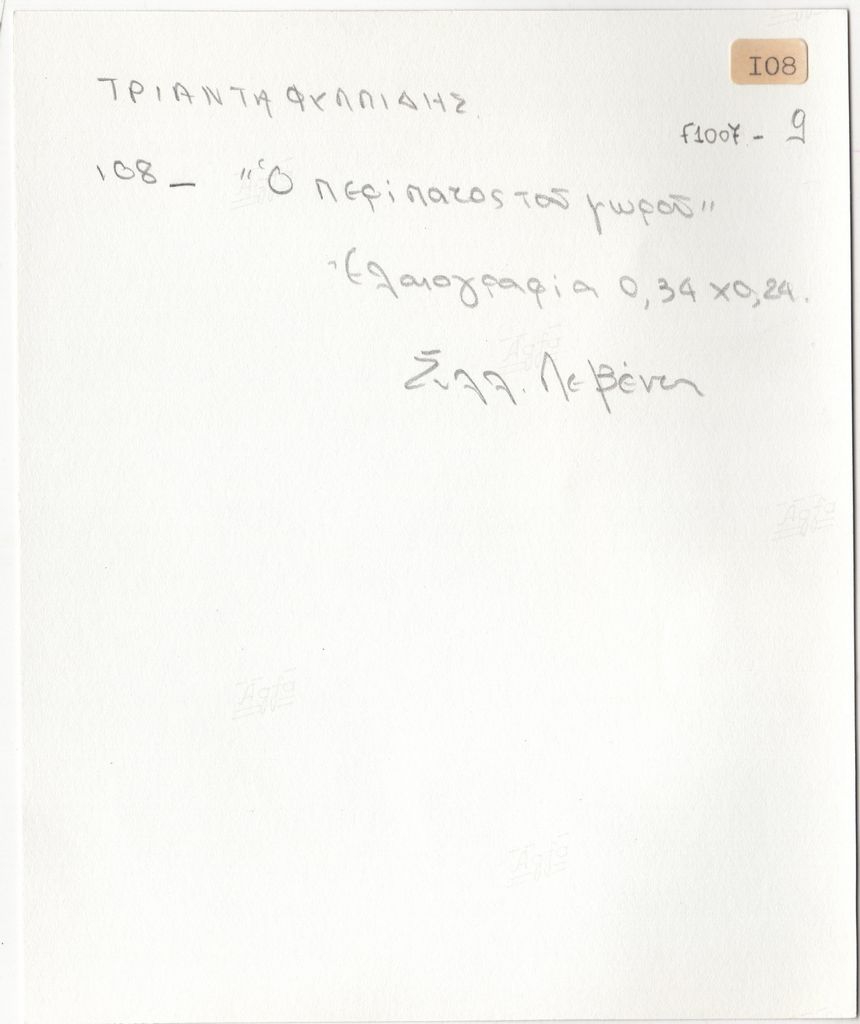 108
ΤΡΙΑΝΤΑΦΥΛΛΙΔΗΣ
f1007 - 9
108 - "Ὁ περίπατος τοῦ μωροῦ"
Ἐλαιογραφία 0,34 x 0,24.
Συλλ. Λεβέντη
Agfa
Agfa
Agfa
Agfa